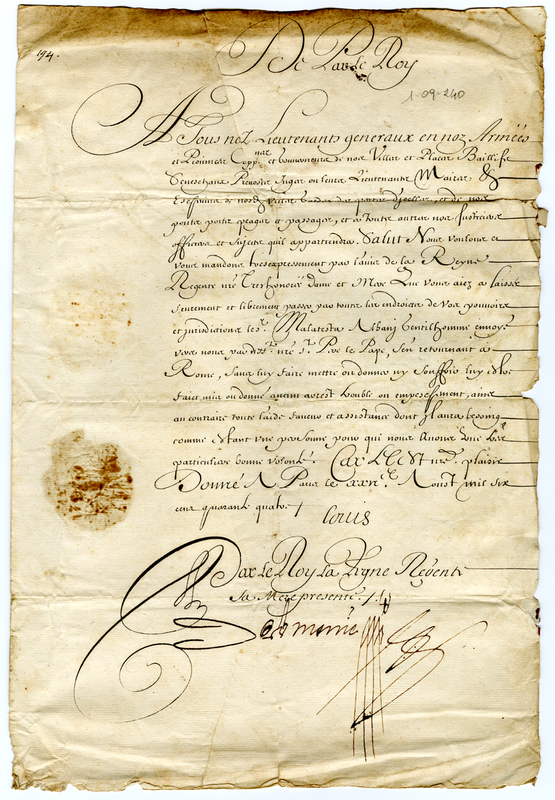 194.
De Par le Roy
1-09-240
A Tous noz Lieutenants generaux en noz Armées
et Provinces nar̃ Gouverneurs de noz Villes et Places Baillifs
Seneschaux Prevosts Juges ou leurs Lieutenants Maires &
Eschevins de nosd. villes gardes des portes d'icelles, et de noz
ponts ports peages et passages, et à toutes autres noz Justiciers
officiers et Sujects qu'il appartiendra. Salut Nous voulons et
vous mandons tresexpressement par l'avis de la Reyne
Regente nr̃e Treshonorée Dame et Mere Que vous aiez a laisser
seurement et librement passer par toutes les endroicts de voz pouvoirs
et jurisdictions le s.r Malatesta Albanj Gentilhomme envoyé
vers nous par nr̃e S. Pere le Pape, s'en retournant à
Rome, sans luy faire mettre ou donner ny souffrir luy estre
faict mis ou donné aucun arrest trouble ou empeschement, ains
au contraire toute l'aide faveur et assistance dont Il aura besoing
comme estant une personne pour qui nous avons une
particuliere bonne volonté. Car tel est nr̃e plaisir
Donné A Paris le Aoust mil six
cens quarante quatre
Louis
Par le Roy la Reyne Regente
sa Mere presente